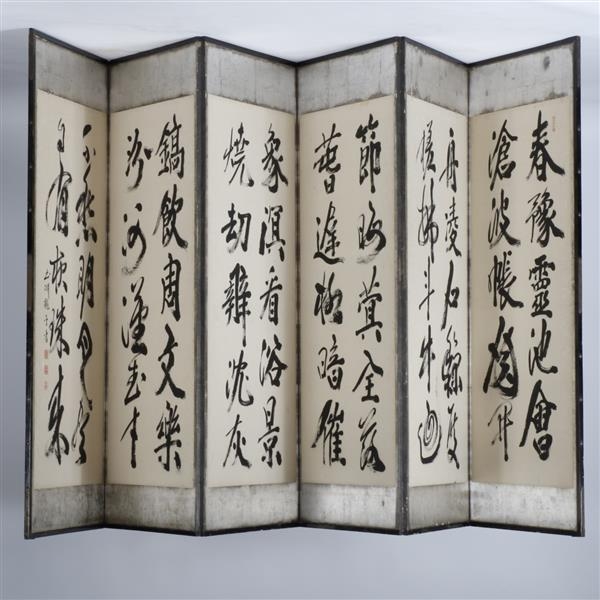 春豫靈池會
滄波帳殿開
舟凌石鯨度
槎拂斗牛迴
節晦蓂全落
春遲柳暗催
象溟看浴景
燒劫辨沈灰
鎬飲周文樂
汾河漢武才
不愁明月盡
自有夜珠来